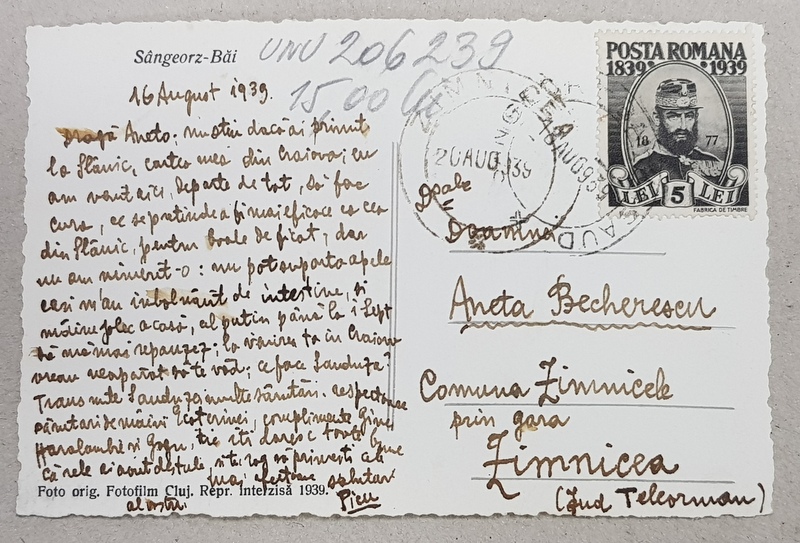 Sângeorz-Băi
UNU 206239
15,00
16 August 1939.
Dragă Aneto; nu știu dacă ai primit
la Slănic, cartea mea din Craiova; eu
am venit aici, departe de tot, să fac
cura, ce se pretinde a fi mai eficace ca cea
din Slănic, pentru boale de ficat, dar
nu am nimerit-o: nu pot suporta apele
cari m'au îmbolnăvit de intestine, și
mâine plec acasă, cel puțin până la 1 Sept
să mă mai repauzez; la venirea ta în Craiova
vreau neapărat să te văd; ce face Sanduza?
Transmite Sanduzei multe sănătări. respectoase
sănutări de măicei Ecaterinei, complimente Gine
Haralambie și Gogu, ție îți doresc toate bune
că rele ai avut destule, și te rog să primești cele
mai afectoase salutări
al vostru. Picu
Foto orig. Fotofilm Cluj. Repr. interzisă 1939.
POSTA ROMANA
1839 1939
18 77
LEI 5 LEI
FABRICA DE TIMBRE
ZIMNICEA
20 AUG 939
NASAUD
Doamnei
Aneta Becherescu
Comuna Zimnicele
prin gara
Zimnicea
(Jud Teleorman)